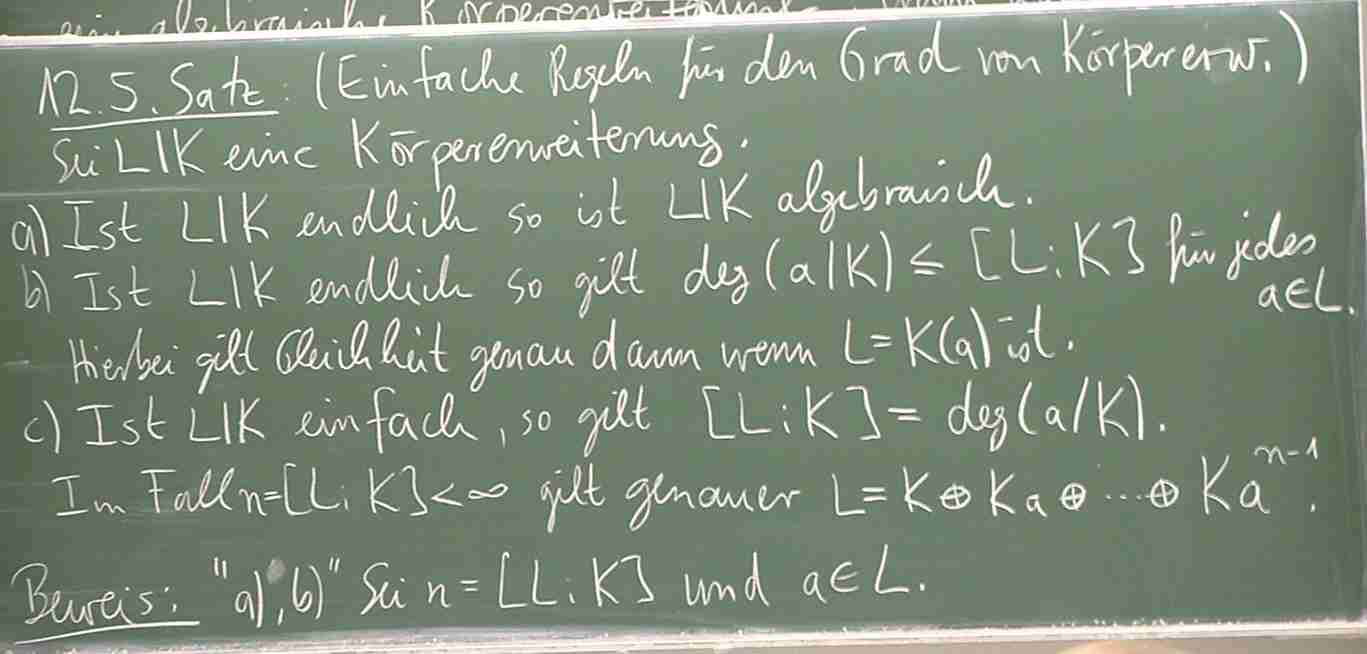 eine algebraische Körpererweiterung.
12.5. Satz: (Einfache Regeln für den Grad von Körpererw.)
Sei L|K eine Körpererweiterung.
a) Ist L|K endlich so ist L|K algebraisch.
b) Ist L|K endlich so gilt deg(a/K) ≤ [L:K] für jedes
a∈L.
Hierbei gilt Gleichheit genau dann wenn L=K(a) ist.
c) Ist L|K einfach, so gilt [L:K] = deg(a/K).
Im Fall n=[L:K]<∞ gilt genauer L=K⊕Ka⊕...⊕Ka^{n-1}.
Beweis: "a),b)" Sei n=[L:K] und a∈L.